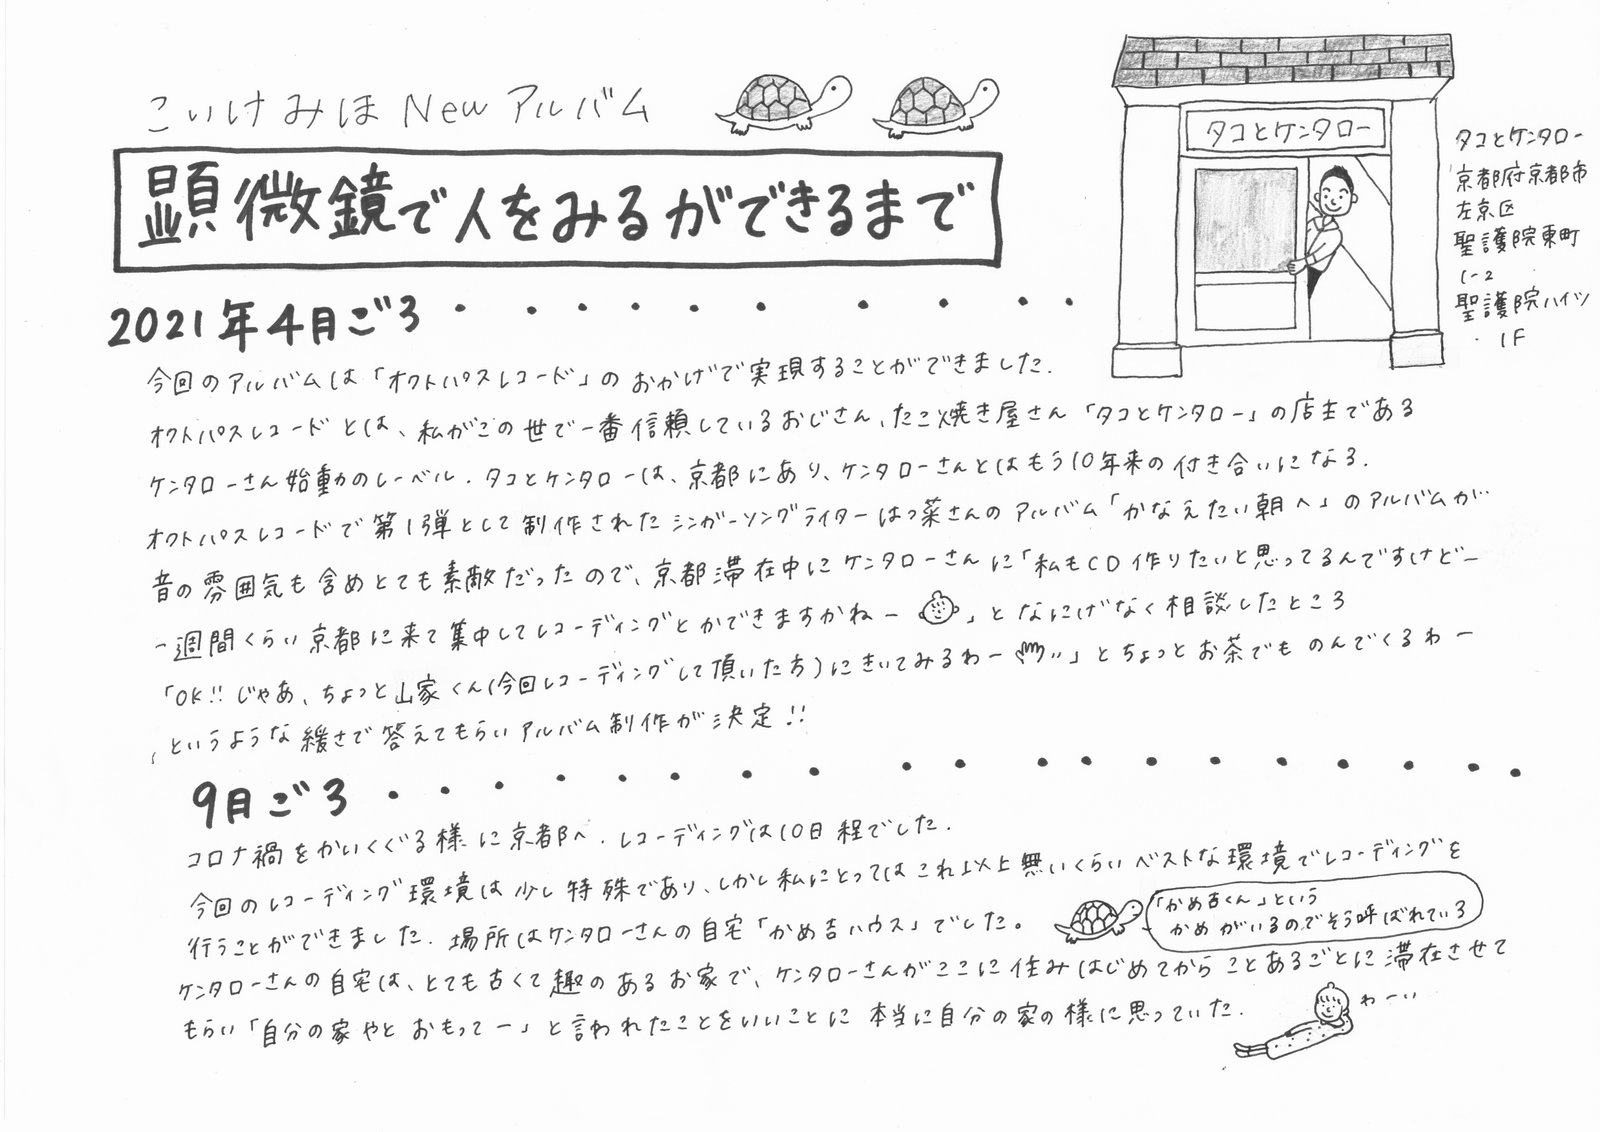 こいけみほ New アルバム
顕微鏡で人をみるができるまで
タコとケンタロー
タコとケンタロー
京都府京都市
左京区
聖護院東町
1-2
聖護院ハイツ
1F
2021年4月ごろ
今回のアルバムは「オクトパスレコード」のおかげで実現することができました.
オクトパスレコードとは、私がこの世で一番信頼しているおじさん、たこ焼き屋さん「タコとケンタロー」の店主である
ケンタローさん始動のレーベル. タコとケンタローは、京都にあり、ケンタローさんとはもう10年来の付き合いになる.
オクトパスレコードで第1弾として制作されたシンガーソングライターはっ菜さんのアルバム「かなえたい朝へ」のアルバムが
音の雰囲気も含めとても素敵だったので、京都滞在中にケンタローさんに「私もCD作りたいと思ってるんですけどー
一週間くらい京都に来て集中してレコーディングとかできますかねー」となにげなく相談したところ
「OK!! じゃあ、ちょっと山家くん(今回レコーディングして頂いた方)にきいてみるわー」とちょっとお茶でものんでくるわー
、というような緩さで答えてもらいアルバム制作が決定!!
9月ごろ
コロナ禍をかいくぐる様に京都へ. レコーディングは10日程でした.
今回のレコーディング環境は少し特殊であり、しかし私にとってはこれ以上無いくらいベストな環境でレコーディングを
行うことができました. 場所はケンタローさんの自宅「かめ吉ハウス」でした。
「かめ吉くん」という
かめがいるのでそう呼ばれている
ケンタローさんの自宅は、とても古くて趣のあるお家で、ケンタローさんがここに住みはじめてからことあるごとに滞在させて
もらい「自分の家やとおもってー」と言われたことをいいことに本当に自分の家の様に思っていた.
わーい